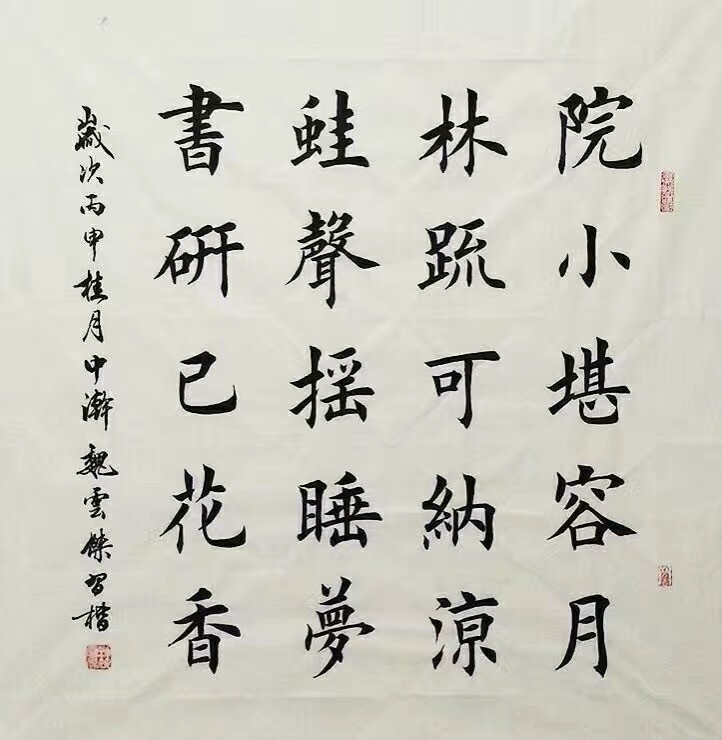 院小堪容月
林疏可納涼
蛙聲揺睡夢
書研已花香
歲次丙申桂月中澣魏雲傑習楷